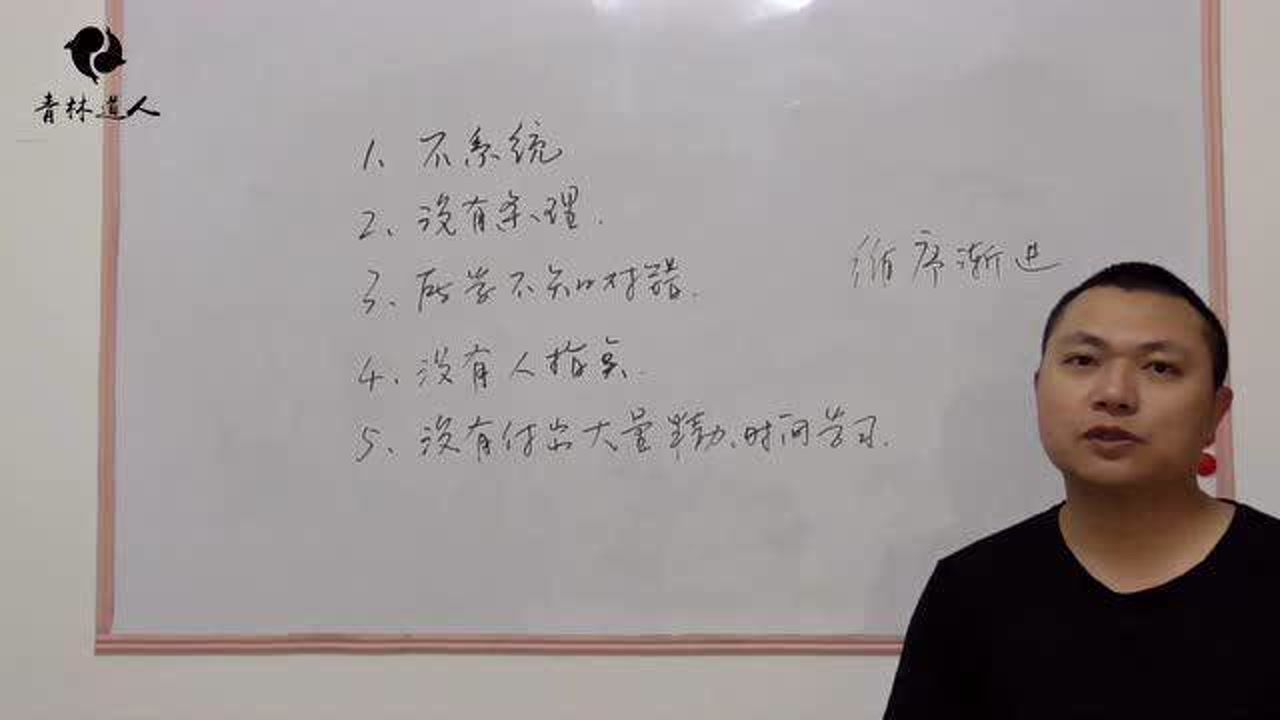 青林道人
1、不系统
2、没有条理.
3、所学不知对错.
循序渐进
4、没有人指点.
5、没有付出大量精力、时间学习.